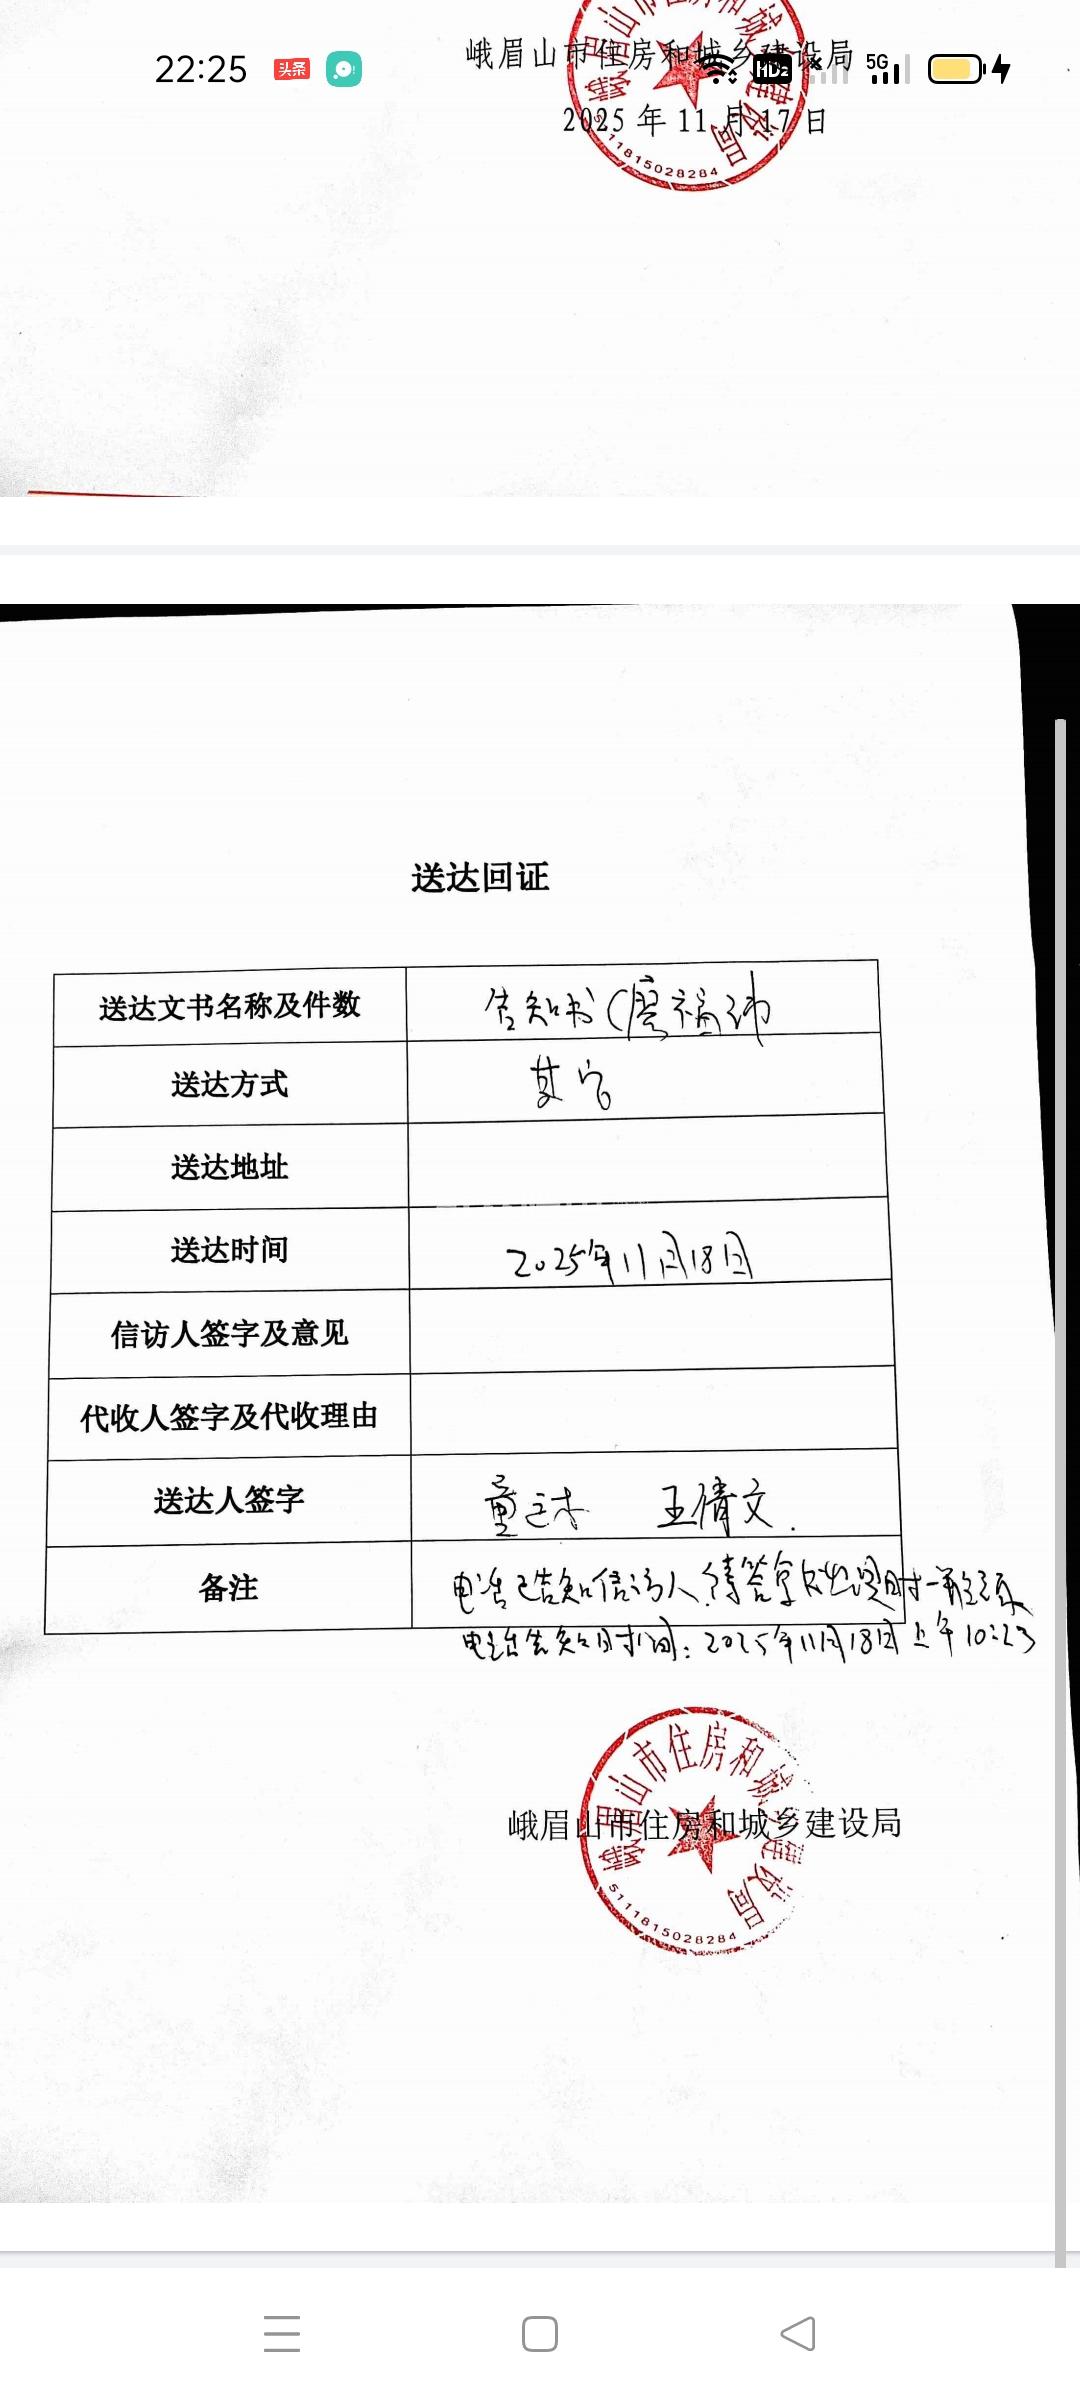 22:25 头条 HD2 5G
峨眉山市住房和城乡建设局
2025 年 11 月 17 日
峨眉山市住房和城乡建设局
5111815028284
送达回证
送达文书名称及件数 告知书(廖福沛
送达方式 其它
送达地址
送达时间 2025年11月18日
信访人签字及意见
代收人签字及代收理由
送达人签字 童 王倩文.
备注 电话已告知信访人,待答复处理时一并送
电话告知时间:2025年11月18日上午10:23
峨眉山市住房和城乡建设局
峨眉山市住房和城乡建设局
5111815028284